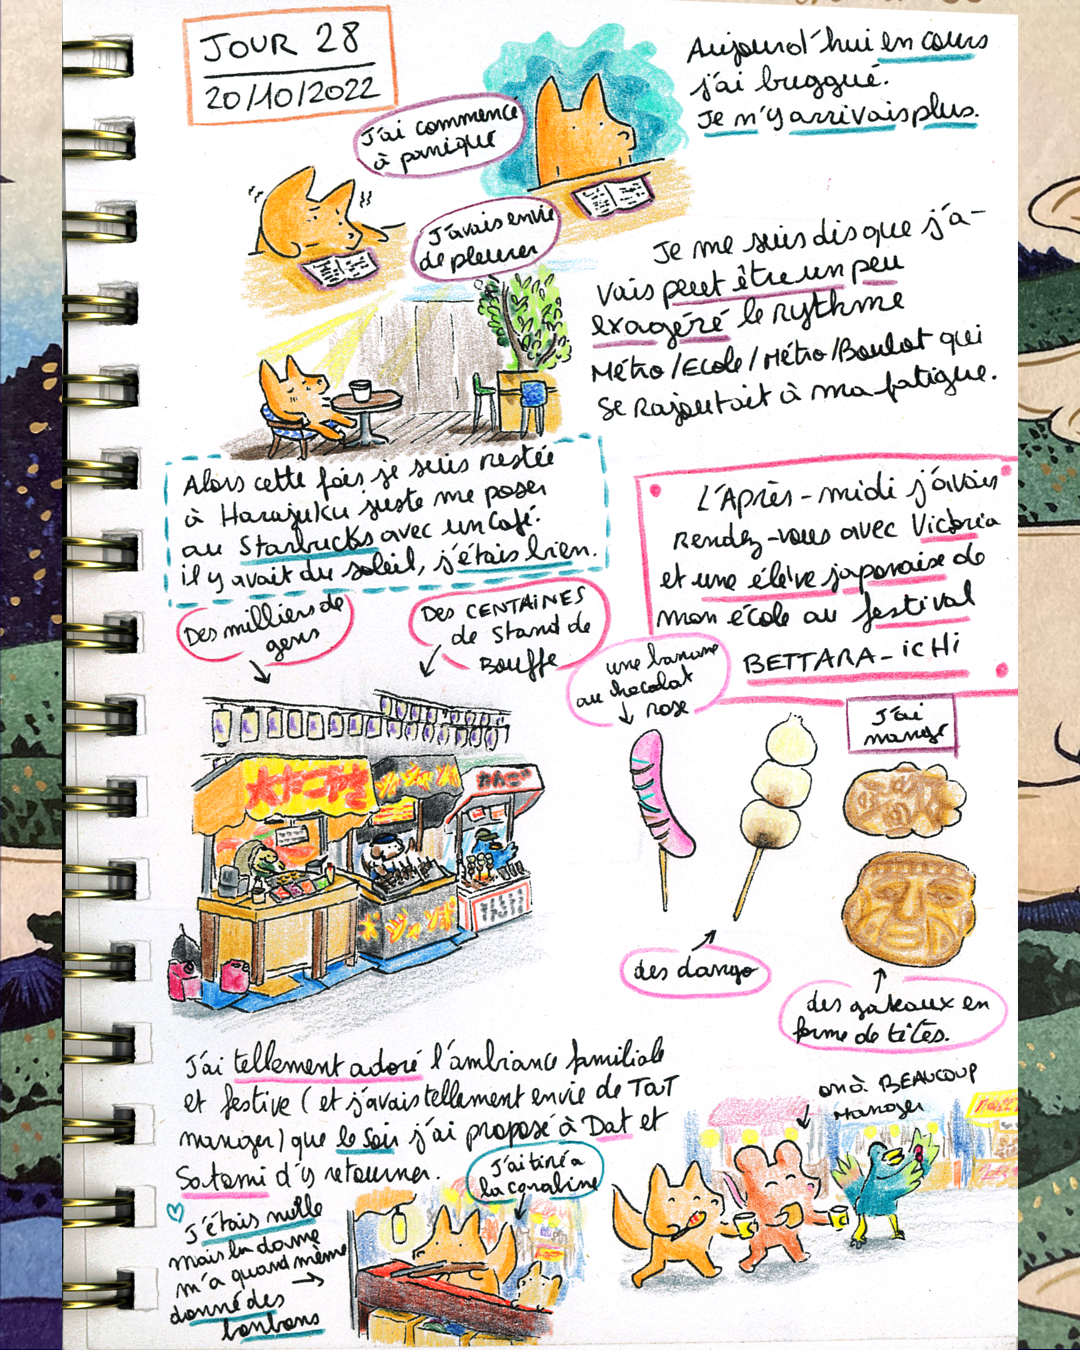 JOUR 28
20/10/2022
Aujourd'hui en cours
j'ai buggué.
Je n'y arrivais plus.
J'ai commencé
à panique
J'avais envie
de pleurer
Je me suis dis que j'a-
vais peut être un peu
exagéré le rythme
Métro/Ecole/Métro/Boulot qui
se rajoutait à ma fatigue.
Alors cette fois je suis restée
à Harajuku juste me poser
au Starbucks avec un café.
il y avait du soleil, j'étais bien.
L'Après-midi j'avais
rendez-vous avec Victoria
et une élève japonaise de
mon école au festival
BETTARA-iCHi
Des milliers de
gens
Des CENTAINES
de stand de
Bouffe
une banane
au chocolat
rose
J'ai
mangé
大たこやき
たんご
des dango
des gateaux en
forme de têtes.
J'ai tellement adoré l'ambiance familiale
et festive (et j'avais tellement envie de TOUT
manger) que le soir j'ai proposé à Dat et
Satomi d'y retourner.
on a BEAUCOUP
Manger
J'ai tiré a
la carabine
J'étais nulle
mais la dame
m'a quand même
donné des
bonbons